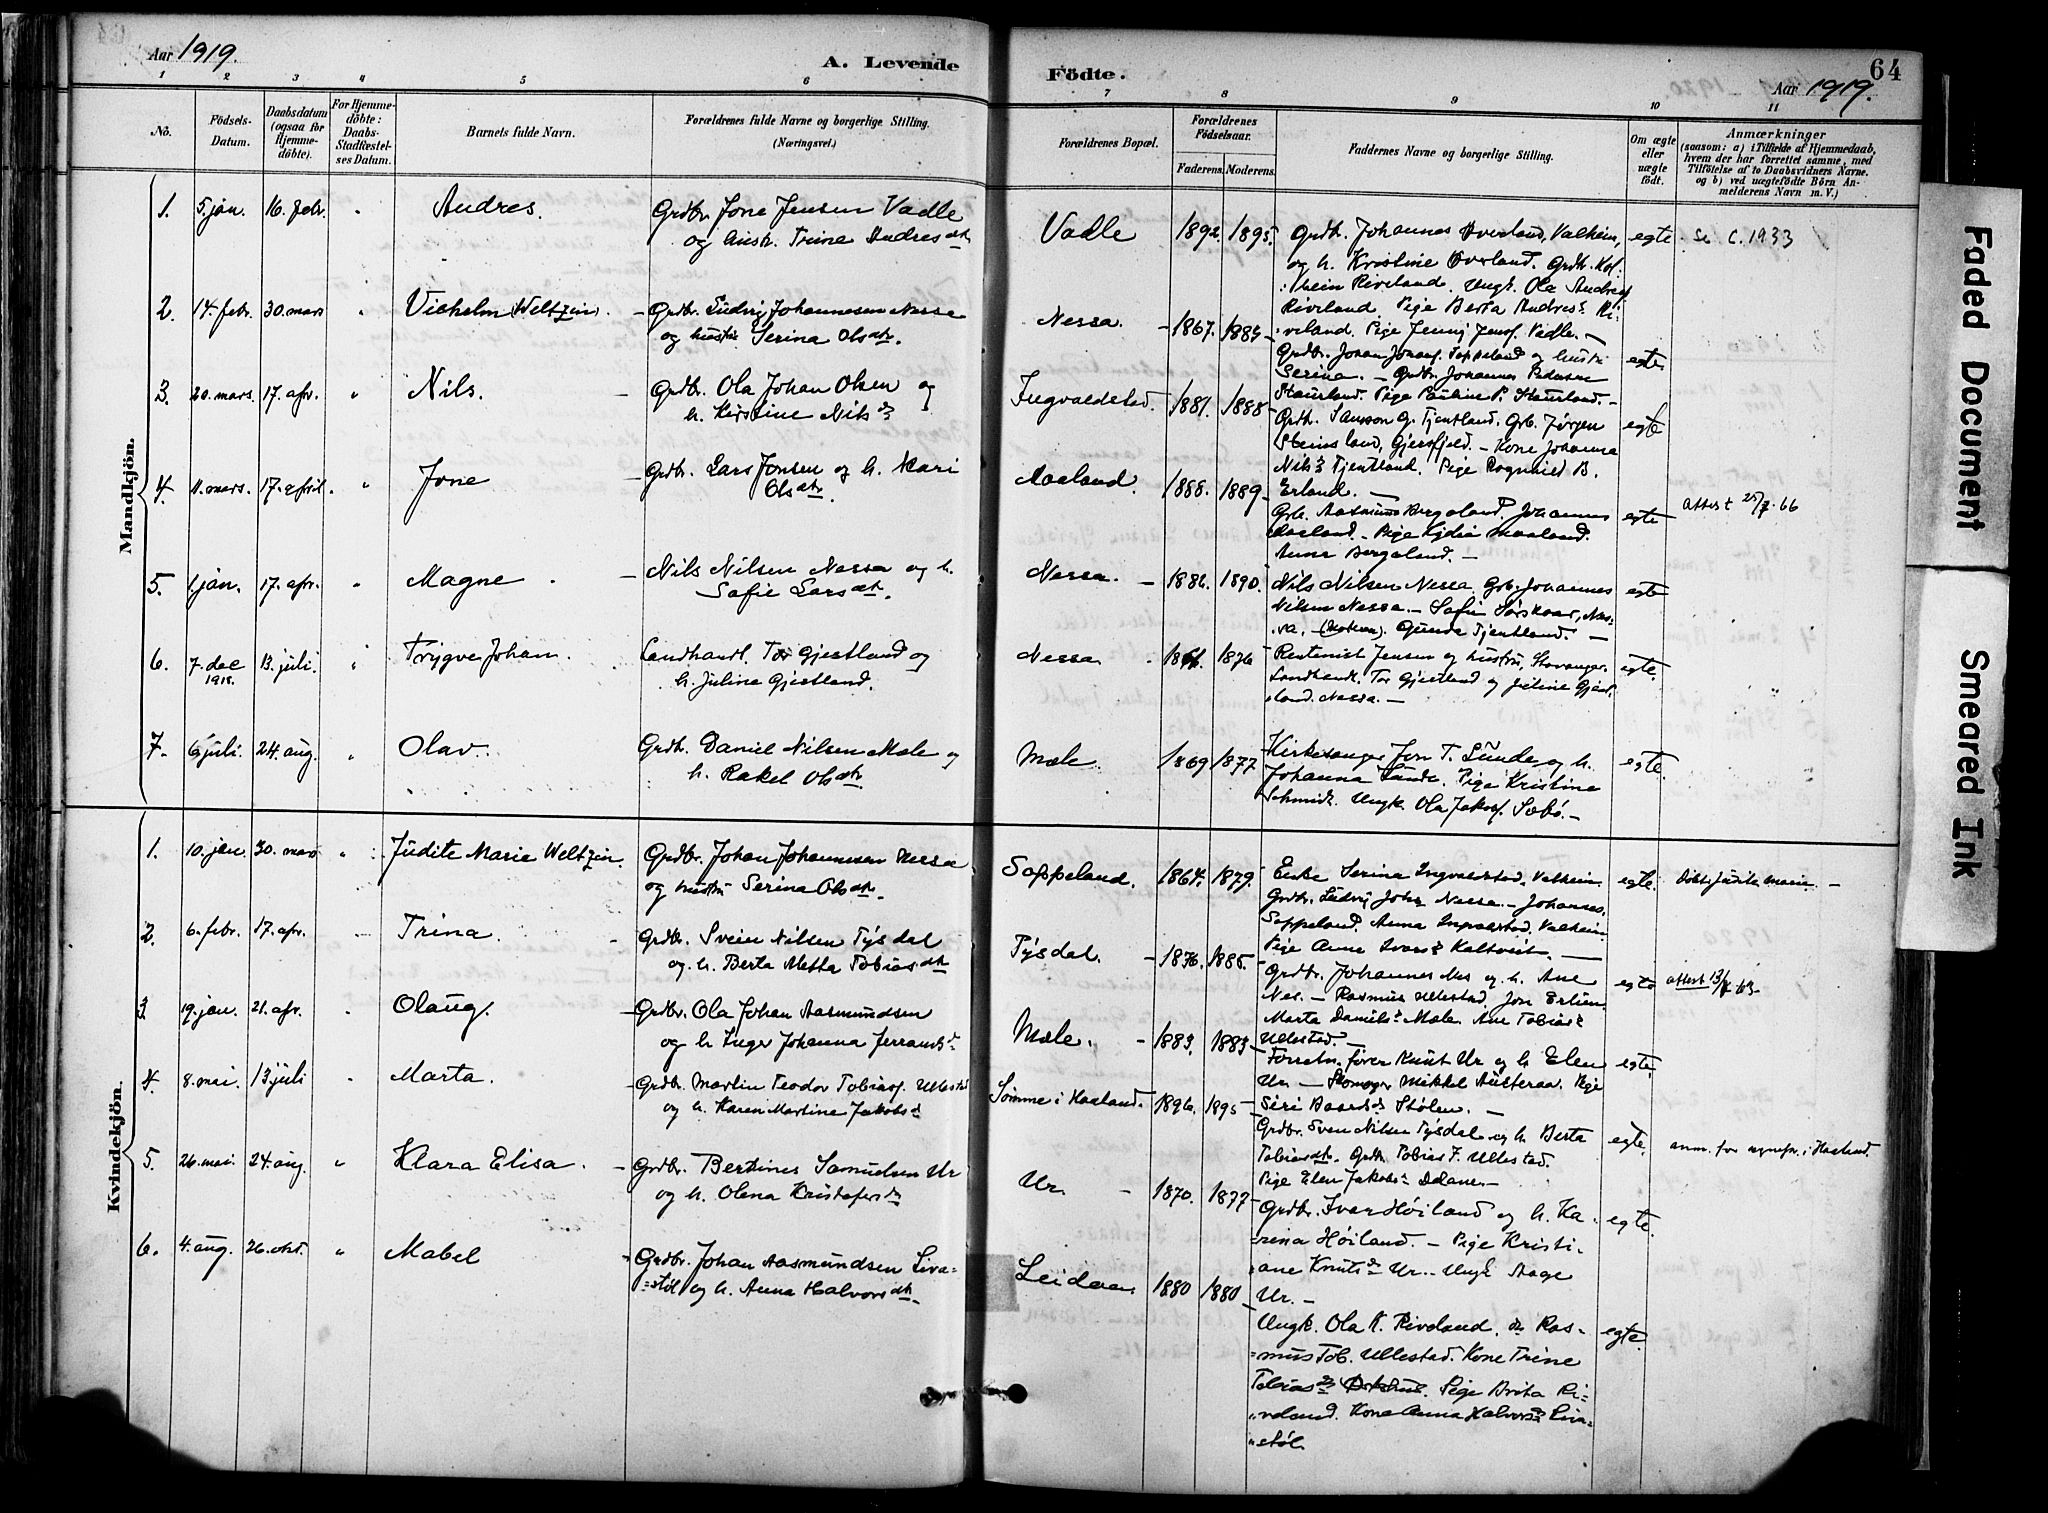 64
Aar 1919.
A. Levende
Födte.
Aar 1919.
1 2 3 4 5 6 7 8 9 10 11
No.
Födsels-Datum.
Daabsdatum (ogsaa for Hjemmedöbte).
For Hjemmedöbte: Daabs-Stadfæstelses Datum.
Barnets fulde Navn.
Forældrenes fulde Navne og borgerlige Stilling.
(Næringsvei.)
Forældrenes Bopæl.
Forældrenes Födselsaar.
Faderens. Moderens.
Faddernes Navne og borgerlige Stilling.
Om ægte eller uægte födt.
Anmærkninger
(saasom: a) i Tilfælde af Hjemmedaab,
hvem der har forrettet samme, med
Tilföielse af to Daabsvidners Navne.
og b) ved uægtefödte Börn An-
melderens Navn m. V.)
Mandkjön.
1. 5. jan. 16. febr. " Andres. Grdbr. Jone Jensen Vadle
og hustr. Trine Andresdtr.
Vadle 1892. 1895.
Grdbr. Johannes Overland, Valheim,
og h. Kristine Overland. Grdbr. Kol-
bein Riveland. Ungk. Ola Andresf.
Riveland. Pige Berta Andresd. Ri-
veland. Pige Jenny Jensf. Vadle. —
egte. Se C. 1933
2. 14. febr. 30. mars " Vilhelm (Weltzin). Grdbr. Ludvig Johannesen Nessa
og hustr. Serina Olsdtr.
Nessa. 1867. 1884
Grdbr. Johan Johansf. Soppeland og hustr.
Serina. — Grdbr. Johannes Pedersen
Staurland. Pige Pauline P. Staurland. —
egte.
3. 20. mars. 17. apr. " Nils. Grdbr. Ola Johan Olsen og
h. Kirstine Nilsd.
Ingvaldstad. 1881. 1888
Grdbr. Samson G. Tjentland. Grb. Jørgen
Steinsland, Gjersfjeld. — Kone Johanna
Nilsd. Tjentland. Pige Ragnhild B.
Erland. —
egte
4. 11. mars. 17. april. " Jone Grdbr. Lars Jonsen og h. Kari
Olsdtr.
Aaeland. 1888. 1889
Grb. Aasmund Bergeland. Johannes
Aaeland. — Pige Lydia Maaland.
Anna Bergeland. —
egte attest 25/7-66
5. 1. jan. 17. apr. " Magne Nils Nilsen Nessa og h.
Sofie Larsdtr.
Nessa. 1882. 1890.
Nils Nilsen Nessa, Grb. Johannes
Nilsen Nessa. — Sofie Sørskaar, Nes-
sa. Gunda Tjentland. —
egte
6. 7. dec 1918. 13. juli. " Trygve Johan. Landhandl. Tor Gjestland og
h. Juline Gjestland.
Nessa 1876
Rentenist Jensen og hustru, Stavanger.
Landhandl. Tor Gjestland og Juline Gjest-
land. Nessa. —
egte.
7. 6 juli. 24. aug. " Olav. Grdbr. Daniel Nilsen Mæle og
h. Rakel Olsdtr.
Mæle 1869 1877
Kirkesanger Jon T. Lunde og h.
Johanna Lunde. Pige Kristine
Schmidt. Ungk. Ola Jakobsf. Sæbø. —
egte.
Kvindekjön.
1. 10. jan. 30. mars " Judite Marie Weltzin. Grdbr. Johan Johannesen Nessa
og hustru Serina Olsdtr.
Soppeland. 1864. 1879.
Enke Serina Ingvaldstad. Valheim.
Grdbr. Ludvig Johs Nessa. — Johannes
Soppeland. Anna Ingvaldstad. Valheim.
Pige Anne Ivarsd. Kaltveit. —
egte. Døbt Judite Marie. —
2. 6. febr. 17. apr. Trina. Grdbr. Svein Nilsen Tysdal
og h. Berta Metta Tobiasdtr.
Tysdal. 1876. 1885.
Grdbr. Johannes Nes og h. Ane
Nes. — Rasmus Ullestad. Jon Erlien.
Marta Daniels d. Mæle. Ane Tobiasd.
Ullestad. —
egte attest 13/8-63.
3 19. jan. 21. apr. Olaug. Grdbr. Ola Johan Aasmundsen
og h Inger Johanna
Mæle. 1883. 1883
Forretn. fører Knut Ur og h Elen
Ur — Skomager Mikkel Austeraa. Pige
Siri Baardsd. Stølen. —
egte.
4 8. mai. 13 juli Marta. Grdbr. Martin Teodor Tobiasf. Ullestad
og h. Karen Martine Jakobsd.
Sømme i Haaland. 1896. 1895
Grdbr. Sven Nilsen Tysdal og h Berta
Tobiasdtr. Grdbr. Tobias T. Ullestad.
Pige Elen Jakobsd. —
egte. anm. for sognepr. i Haaland.
5. 26. mai. 24. aug. " Klara Elisa. Grdbr. Bertines Samuelsen Ur
og h. Olena Kristofersd.
Ur. 1870. 1877
Grdbr. Ivar Høiland og h. Ka-
rina Høiland. — Pige Kristi-
ane Knutsd. Ur. Ungk Aage
Ur. —
egte.
6. 4. aug. 26. okt. " Mabel Grdbr. Johan Aasmundsen Liva-
støl og h. Anna Halvorsdtr.
1880 1880
Ungk. Ola K. Riveland. do Ras-
mus Tob. Ullestad. Kone Trine
Tobiasd. Pige Brita Ri-
veland. Kone Anna Halvorsd. Liva-
støl.
egte.
Faded Document
Smeared Ink